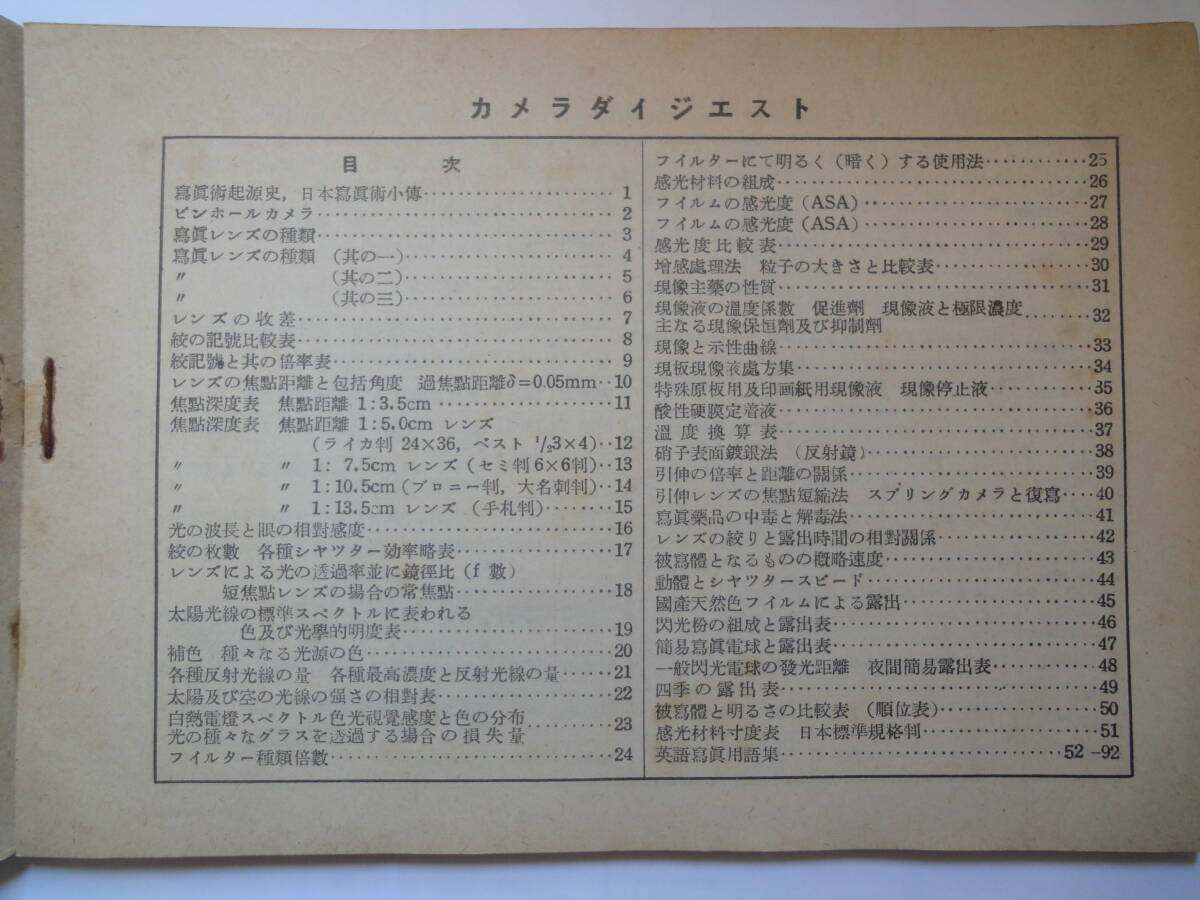 カメラダイジエスト
目次
寫眞術起源史，日本寫眞術小傳……………………1
ピンホールカメラ……………………2
寫眞レンズの種類……………………3
寫眞レンズの種類 （其の一）……………………4
〃 （其の二）……………………5
〃 （其の三）……………………6
レンズの收差……………………7
絞の記號比較表……………………8
絞記號と其の倍率表……………………9
レンズの焦點距離と包括角度 過焦點距離δ=0.05mm‥10
焦點深度表 焦點距離 1:3.5cm……………………11
焦點深度表 焦點距離 1:5.0cm レンズ
（ライカ判 24×36，ベスト 1/2 3×4）‥12
〃 〃 1: 7.5cm レンズ（セミ判6×6判）‥13
〃 〃 1:10.5cm（ブロニー判，大名刺判）‥14
〃 〃 1:13.5cm レンズ （手札判）………15
光の波長と眼の相對感度……………………16
絞の枚數 各種シヤツター効率略表……………………17
レンズによる光の透過率並に鏡徑比（f 數）
短焦點レンズの場合の常焦點……………………18
太陽光線の標準スペクトルに表われる
色及び光學的明度表……………………19
補色 種々なる光源の色……………………20
各種反射光線の量 各種最高濃度と反射光線の量……21
太陽及び空の光線の强さの相對表……………………22
白熱電燈スペクトル色光視覺感度と色の分布
光の種々なグラスを透過する場合の損失量…………23
フイルター種類倍數……………………24
フイルターにて明るく（暗く）する使用法…………25
感光材料の組成……………………26
フイルムの感光度（ASA）……………………27
フイルムの感光度（ASA）……………………28
感光度比較表……………………29
增感處理法 粒子の大きさと比較表……………………30
現像主藥の性質……………………31
現像液の溫度係數 促進劑 現像液と極限濃度
主なる現像保恒劑及び抑制劑…………32
現像と示性曲線……………………33
現板現像液處方集……………………34
特殊原板用及印画紙用現像液 現像停止液…………35
酸性硬膜定着液……………………36
溫度換算表……………………37
硝子表面鍍銀法 （反射鏡）……………………38
引伸の倍率と距離の關係……………………39
引伸レンズの焦點短縮法 スプリングカメラと復寫‥‥40
寫眞藥品の中毒と解毒法……………………41
レンズの絞りと露出時間の相對關係……………………42
被寫體となるものの槪略速度……………………43
動體とシヤツタースピード……………………44
國產天然色フイルムによる露出……………………45
閃光粉の組成と露出表……………………46
簡易寫眞電球と露出表……………………47
一般閃光電球の發光距離 夜間簡易露出表…………48
四季の露出表……………………49
被寫體と明るさの比較表 （順位表）……………………50
感光材料寸度表 日本標準規格判……………………51
英語寫眞用語集……………………52 -92